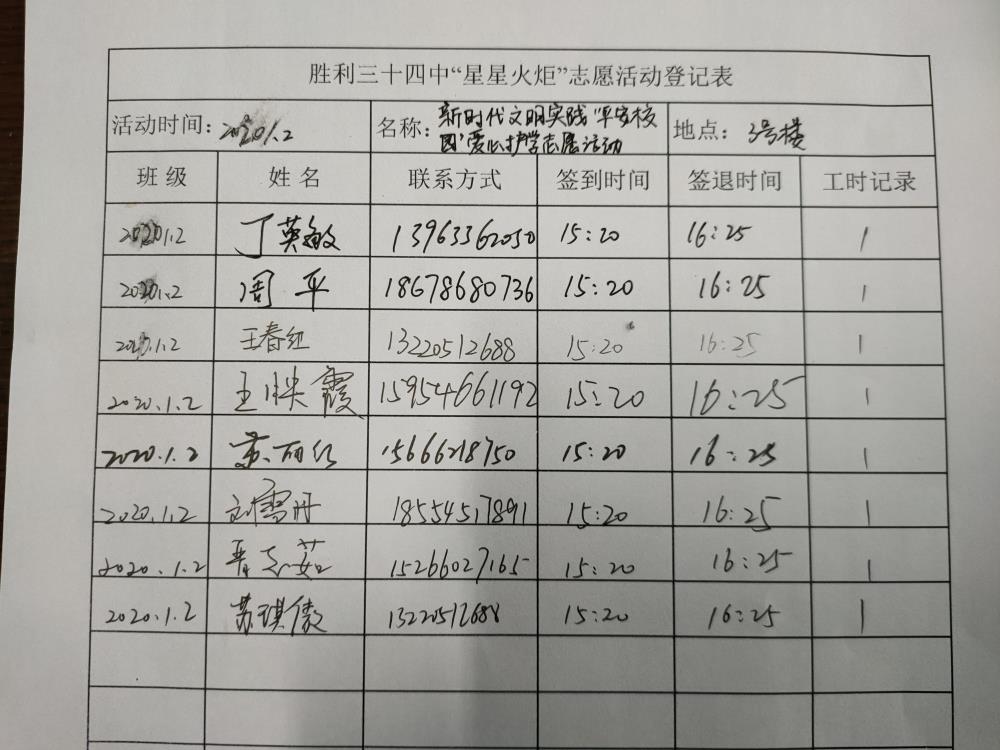 胜利三十四中“星星火炬”志愿活动登记表
活动时间：2020.1.2 名称：新时代文明实践“平安校 地点：3号楼
园”爱心护学志愿活动
班级 姓名 联系方式 签到时间 签退时间 工时记录
2020.1.2 丁英敏 13963362050 15:20 16:25 1
2020.1.2 周平 18678680736 15:20 16:25 1
2020.1.2 王春红 13220512688 15:20 16:25 1
2020.1.2 王映霞 15954661192 15:20 16:25 1
2020.1.2 苏丽红 15666218750 15:20 16:25 1
2020.1.2 刘雪丹 18554517891 15:20 16:25 1
2020.1.2 15266027165 15:20 16:25 1
2020.1.2 苏琪傲 13220512688 15:20 16:25 1